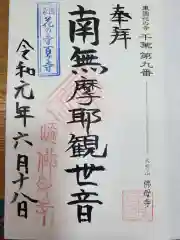 奉拝
東国花の寺 千葉 第九番
南無摩耶観世音
佛母寺
花の寺
令和元年六月十八日